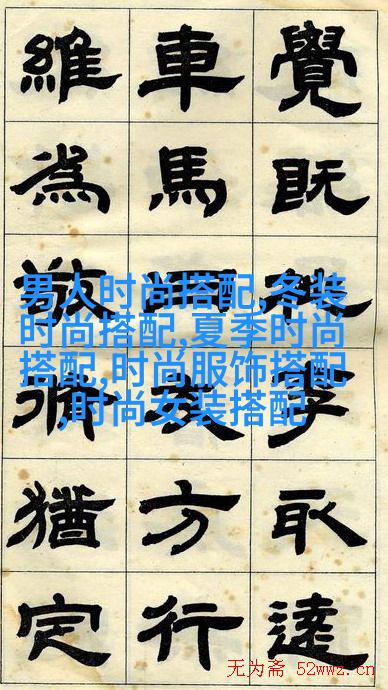 覺既取遠
車馬方行
維為敬脩猶定
男人时尚搭配,冬装
时尚搭配,夏季时尚
搭配,时尚服饰搭配
,时尚女装搭配
无为斋 52wwz.cn